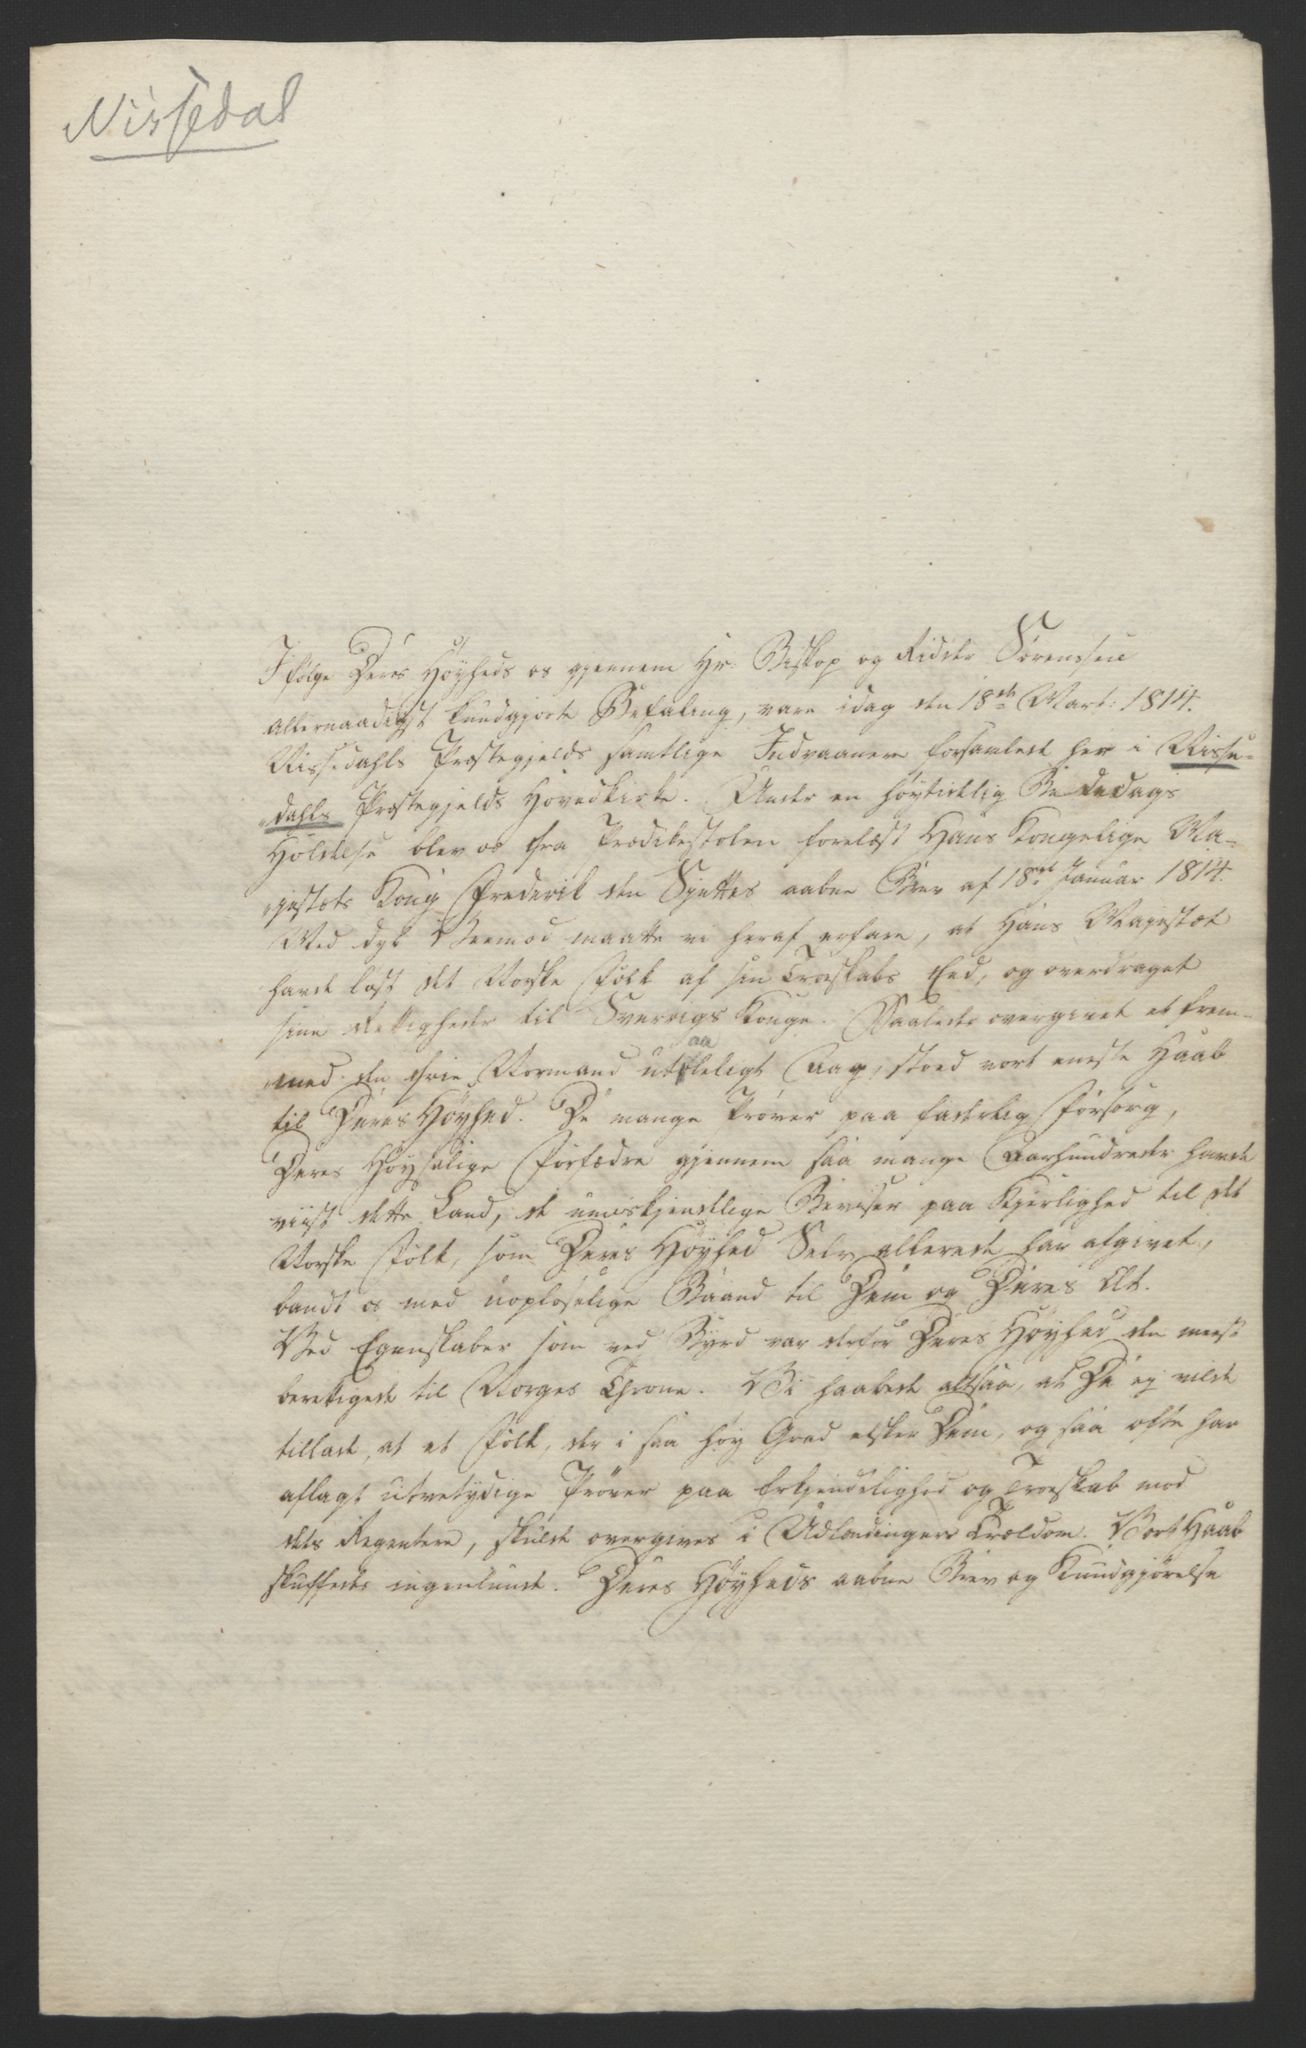 Nissedal
Ifølge Deres Høyheds os gjennem Hr. Biskop og Ridder Sørenssen
allernaadigst kundgjorte Befaling, vare idag den 18de Mart: 1814.
Nissedahls Præstegjelds samtlige Indvaanere forsamlede her i Nisse-
dahls Præstegjelds Hovedkirke. Under en høytidelig Bededags
Holdelse blev os fra Prædikestolen forelæst Hans Kongelige Ma-
jestæts Kong Frederik den Sjettes aabne Brev af 18de Januar 1814.
Med dyb Veemod maatte vi heraf erfare, at Hans Majestæt
havde løst det Norske Folk af sin Troeskabs Eed, og overdraget
sine Rettigheder til Sverrigs Konge. Saaledes overgivet et frem-
med den frie Normand utaaleligt Aag, stoed vort eneste Haab
til Deres Høyhed. De mange Prøver paa faderlig Forsorg,
Deres Høysalige Forfædre gjennem saa mange Aarhundreder havde
viist dette Land, de umiskjendelige Beviser paa Kjerlighed til det
Norske Folk, som Deres Høyhed Selv allerede har afgivet,
bandt os med uopløselige Baand til Dem og Deres Æt.
Ved Egenskaber som ved Byrd var derfor Deres Høyhed den meest
berettigede til Norges Throne. Vi haabede altsaa, at De ej vilde
tillade, at et Folk, der i saa høy Grad elsker Dem, og saa ofte har
aflagt utvetydige Prøver paa Erkjendelighed og Troeskab mod
dets Regentere, skulde overgives i Udlændingers Trældom. Vort Haab
skuffedes ingenlunde. Deres Høyheds aabne Brev og Kundgjørelse